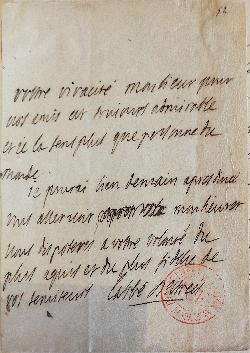 52
votre vivacité monsieur pour
nos amis est toujours admirable
et ie la sens plus que personne du
monde
ie pourai bien demain apres diné
vous aller voir monsieur
nous disposeres a votre volonté du
plus aquis et du plus fidele de
vos serviteurs L'abbé